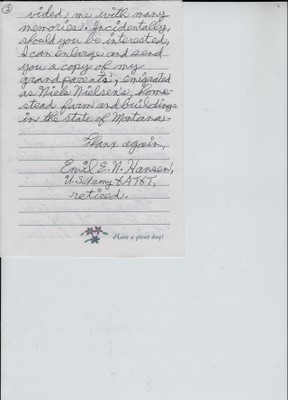 ②
vided me with many
memories. Incidentally,
should you be interested,
I can enlarge and send
you a copy of my
grandparents', emigrated
as Niels Nielsen's, home-
stead farm and buildings
in the state of Montana.
Thanx again,
Emil E. N. Hansen,
U.S. Army & AT&T,
retired.
Have a great day!